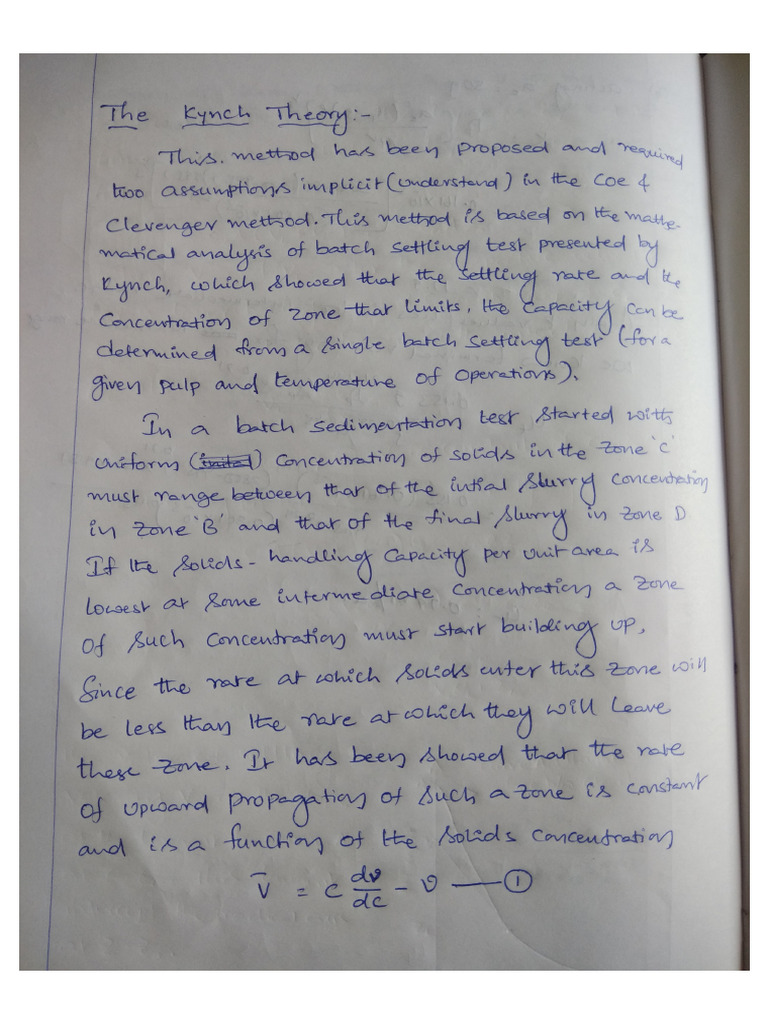 The Kynch Theory:-
This. method has been proposed and required
two assumptions implicit (understand) in the Coe &
Clevenger method. This method is based on the mathe-
matical analysis of batch settling test presented by
Kynch, which showed that the settling rate and the
Concentration of zone that limits, the capacity can be
determined from a single batch settling test (for a
given pulp and temperature of operations).
In a batch sedimentation test started with
uniform (inital) concentration of solids in the zone 'C'
must range between that of the intial slurry concentration
in zone 'B' and that of the final slurry in zone D
If the solids - handling capacity per unit area is
lowest at some intermediate concentration a zone
of such concentration must start building up,
Since the rate at which solids enter this zone will
be less than the rate at which they will leave
these zone. It has been showed that the rate
of upward propagation of such a zone is constant
and is a function of the solids concentration
V̄ = c dv/dc - v —— ①